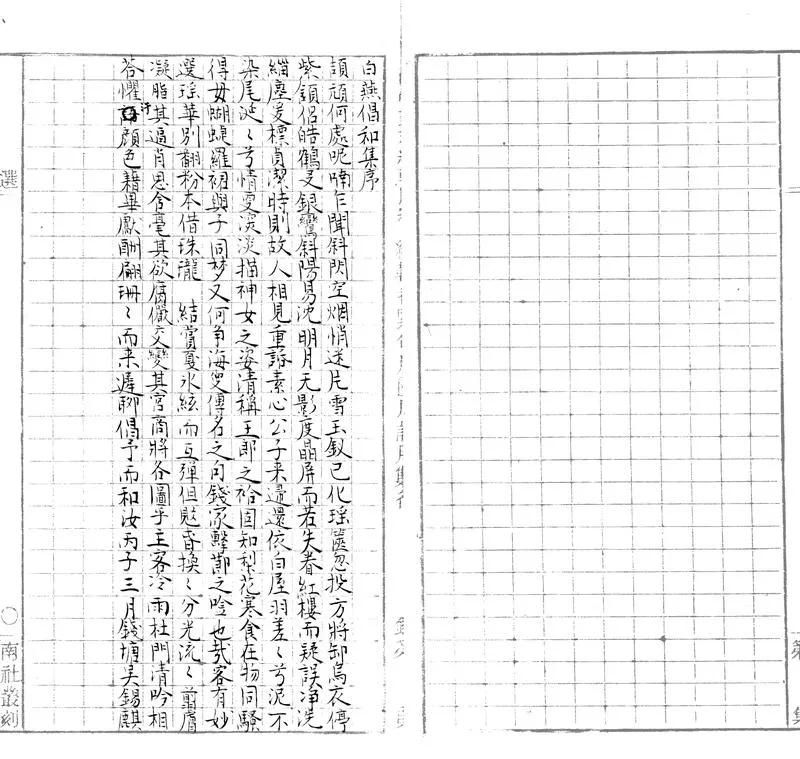 白燕倡和集序
頡頏何處呢喃乍聞斜閃空烟悄送片雪玉釵已化瑶篋忽投方將卸烏衣停
紫領侣皓鶴叐銀鸞斜陽易沈明月无影度晶屏而若失眷紅樓而疑誤净洗
緇塵爰標貞潔時則故人相見重訴素心公子来歸還依白屋羽差〻兮泥不
染尾涎〻兮情雯淡淡描神女之姿清稱王郎之袷固知梨花寒食在物同騷
得毋蝴蜨羅裙與子同梦又何争海叟傳名之句錢家擊鄿之唫也哉客有妙
選瑶華别翻粉本借珠瀧 結賞戛氷絃而互彈但𡙇香換〻分光流〻翦膚
凝脂其逼肖思含毫其欲腐儷文變其宫商將各圖乎主客冷雨杜門清吟相
荅懼許顔色藉畢獻酬翩珊〻而来遲聊倡予而和汝丙子三月錢塘吴錫麒
選
○
南社叢刻
第
集